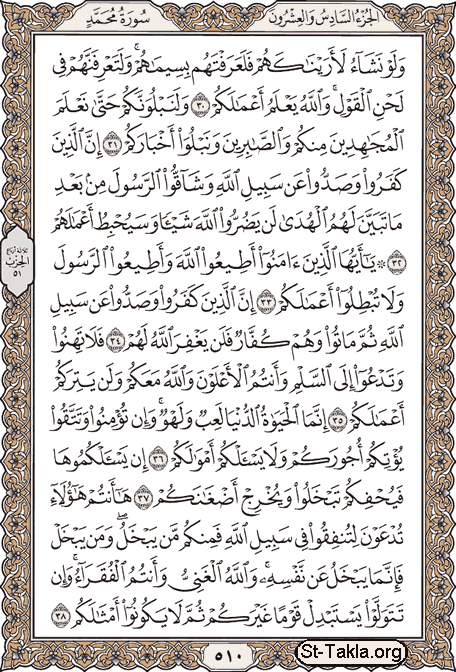 الجزء السادس والعشرون
سورة محمد
وَلَوْ نَشَآءُ لَأَرَيْنَٰكَهُمْ فَلَعَرَفْتَهُم بِسِيمَٰهُمْ ۚ وَلَتَعْرِفَنَّهُمْ فِى
لَحْنِ ٱلْقَوْلِ ۚ وَٱللَّهُ يَعْلَمُ أَعْمَٰلَكُمْ ٣٠ وَلَنَبْلُوَنَّكُمْ حَتَّىٰ نَعْلَمَ
ٱلْمُجَٰهِدِينَ مِنكُمْ وَٱلصَّٰبِرِينَ وَنَبْلُوَا۟ أَخْبَارَكُمْ ٣١ إِنَّ ٱلَّذِينَ
كَفَرُوا۟ وَصَدُّوا۟ عَن سَبِيلِ ٱللَّهِ وَشَآقُّوا۟ ٱلرَّسُولَ مِنۢ بَعْدِ
مَا تَبَيَّنَ لَهُمُ ٱلْهُدَىٰ لَن يَضُرُّوا۟ ٱللَّهَ شَيْـًٔا وَسَيُحْبِطُ أَعْمَٰلَهُمْ
٣٢ ۞ يَٰٓأَيُّهَا ٱلَّذِينَ ءَامَنُوٓا۟ أَطِيعُوا۟ ٱللَّهَ وَأَطِيعُوا۟ ٱلرَّسُولَ
وَلَا تُبْطِلُوٓا۟ أَعْمَٰلَكُمْ ٣٣ إِنَّ ٱلَّذِينَ كَفَرُوا۟ وَصَدُّوا۟ عَن سَبِيلِ
ٱللَّهِ ثُمَّ مَاتُوا۟ وَهُمْ كُفَّارٌ فَلَن يَغْفِرَ ٱللَّهُ لَهُمْ ٣٤ فَلَا تَهِنُوا۟
وَتَدْعُوٓا۟ إِلَى ٱلسَّلْمِ وَأَنتُمُ ٱلْأَعْلَوْنَ وَٱللَّهُ مَعَكُمْ وَلَن يَتِرَكُمْ
أَعْمَٰلَكُمْ ٣٥ إِنَّمَا ٱلْحَيَوٰةُ ٱلدُّنْيَا لَعِبٌ وَلَهْوٌ ۚ وَإِن تُؤْمِنُوا۟ وَتَتَّقُوا۟
يُؤْتِكُمْ أُجُورَكُمْ وَلَا يَسْـَٔلْكُمْ أَمْوَٰلَكُمْ ٣٦ إِن يَسْـَٔلْكُمُوهَا
فَيُحْفِكُمْ تَبْخَلُوا۟ وَيُخْرِجْ أَضْغَٰنَكُمْ ٣٧ هَٰٓأَنتُمْ هَٰٓؤُلَآءِ
تُدْعَوْنَ لِتُنفِقُوا۟ فِى سَبِيلِ ٱللَّهِ فَمِنكُم مَّن يَبْخَلُ ۖ وَمَن يَبْخَلْ
فَإِنَّمَا يَبْخَلُ عَن نَّفْسِهِۦ ۚ وَٱللَّهُ ٱلْغَنِىُّ وَأَنتُمُ ٱلْفُقَرَآءُ ۚ وَإِن
تَتَوَلَّوْا۟ يَسْتَبْدِلْ قَوْمًا غَيْرَكُمْ ثُمَّ لَا يَكُونُوٓا۟ أَمْثَٰلَكُم ٣٨
الحزب
٥١
٥١٠
St-Takla.org